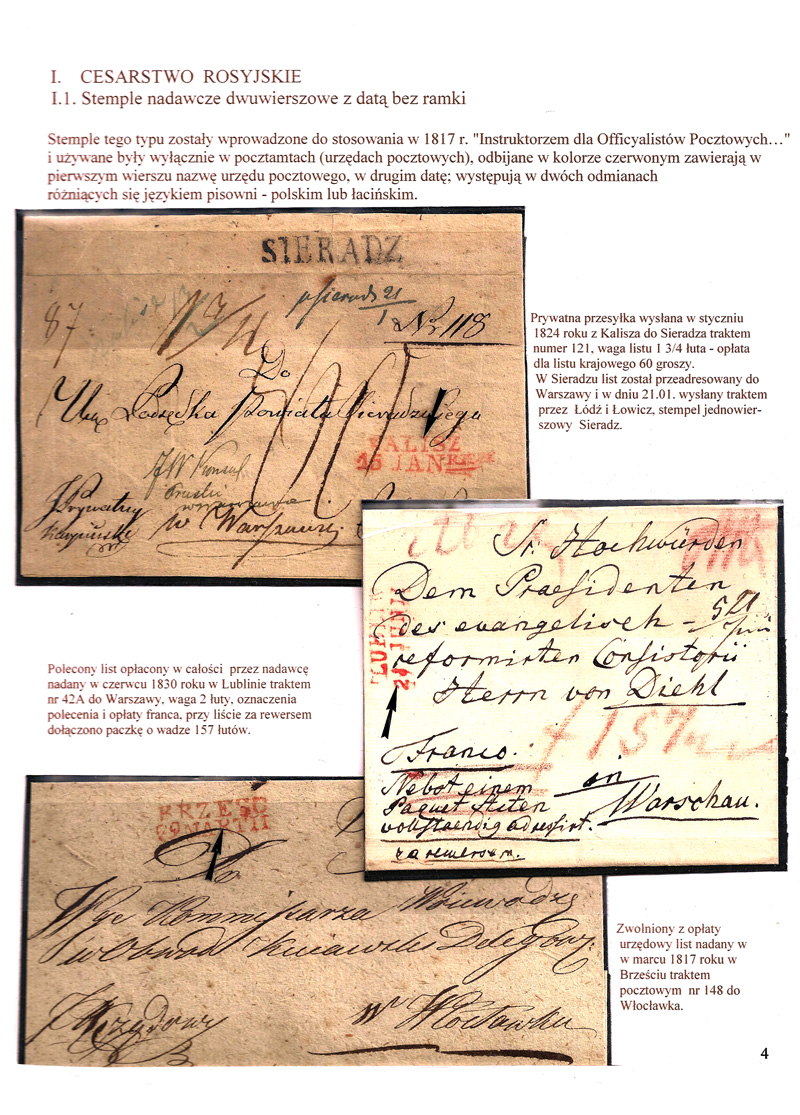 I. CESARSTWO ROSYJSKIE
I.1. Stemple nadawcze dwuwierszowe z datą bez ramki
Stemple tego typu zostały wprowadzone do stosowania w 1817 r. "Instruktorzem dla Officyalistów Pocztowych…"
i używane były wyłącznie w pocztamtach (urzędach pocztowych), odbijane w kolorze czerwonym zawierają w
pierwszym wierszu nazwę urzędu pocztowego, w drugim datę; występują w dwóch odmianach
różniących się językiem pisowni - polskim lub łacińskim.
SIERADZ
87
21
1
No 118
Do
KALISZ
15 JAN
w Warszawie
Prywatna przesyłka wysłana w styczniu
1824 roku z Kalisza do Sieradza traktem
numer 121, waga listu 1 3/4 łuta - opłata
dla listu krajowego 60 groszy.
W Sieradzu list został przeadresowany do
Warszawy i w dniu 21.01. wysłany traktem
przez Łódź i Łowicz, stempel jednowier-
szowy Sieradz.
Sr. Hochwürden
Dem Praesidenten
des evangelisch -
reformirten Consistorii
Herrn von Diehl
LUBLIN
21 JUNII
157
Franco.
an
Nebst einem
Paquet Acten
Warschau.
vollstaendig adressirt.
za rewersem.
Polecony list opłacony w całości przez nadawcę
nadany w czerwcu 1830 roku w Lublinie traktem
nr 42A do Warszawy, waga 2 łuty, oznaczenia
polecenia i opłaty franca, przy liście za rewersem
dołączono paczkę o wadze 157 łutów.
BRZESC
Do
Wge Kommissarza Woiewodzq
w Obwod Kuiawski Delegow:
Urzędowy
w Włocławku
Zwolniony z opłaty
urzędowy list nadany w
w marcu 1817 roku w
Brześciu traktem
pocztowym nr 148 do
Włocławka.
4